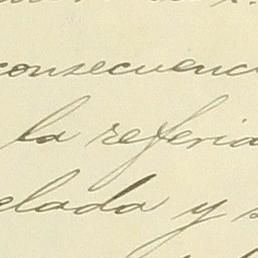 consecuenc
la referia
elada y s